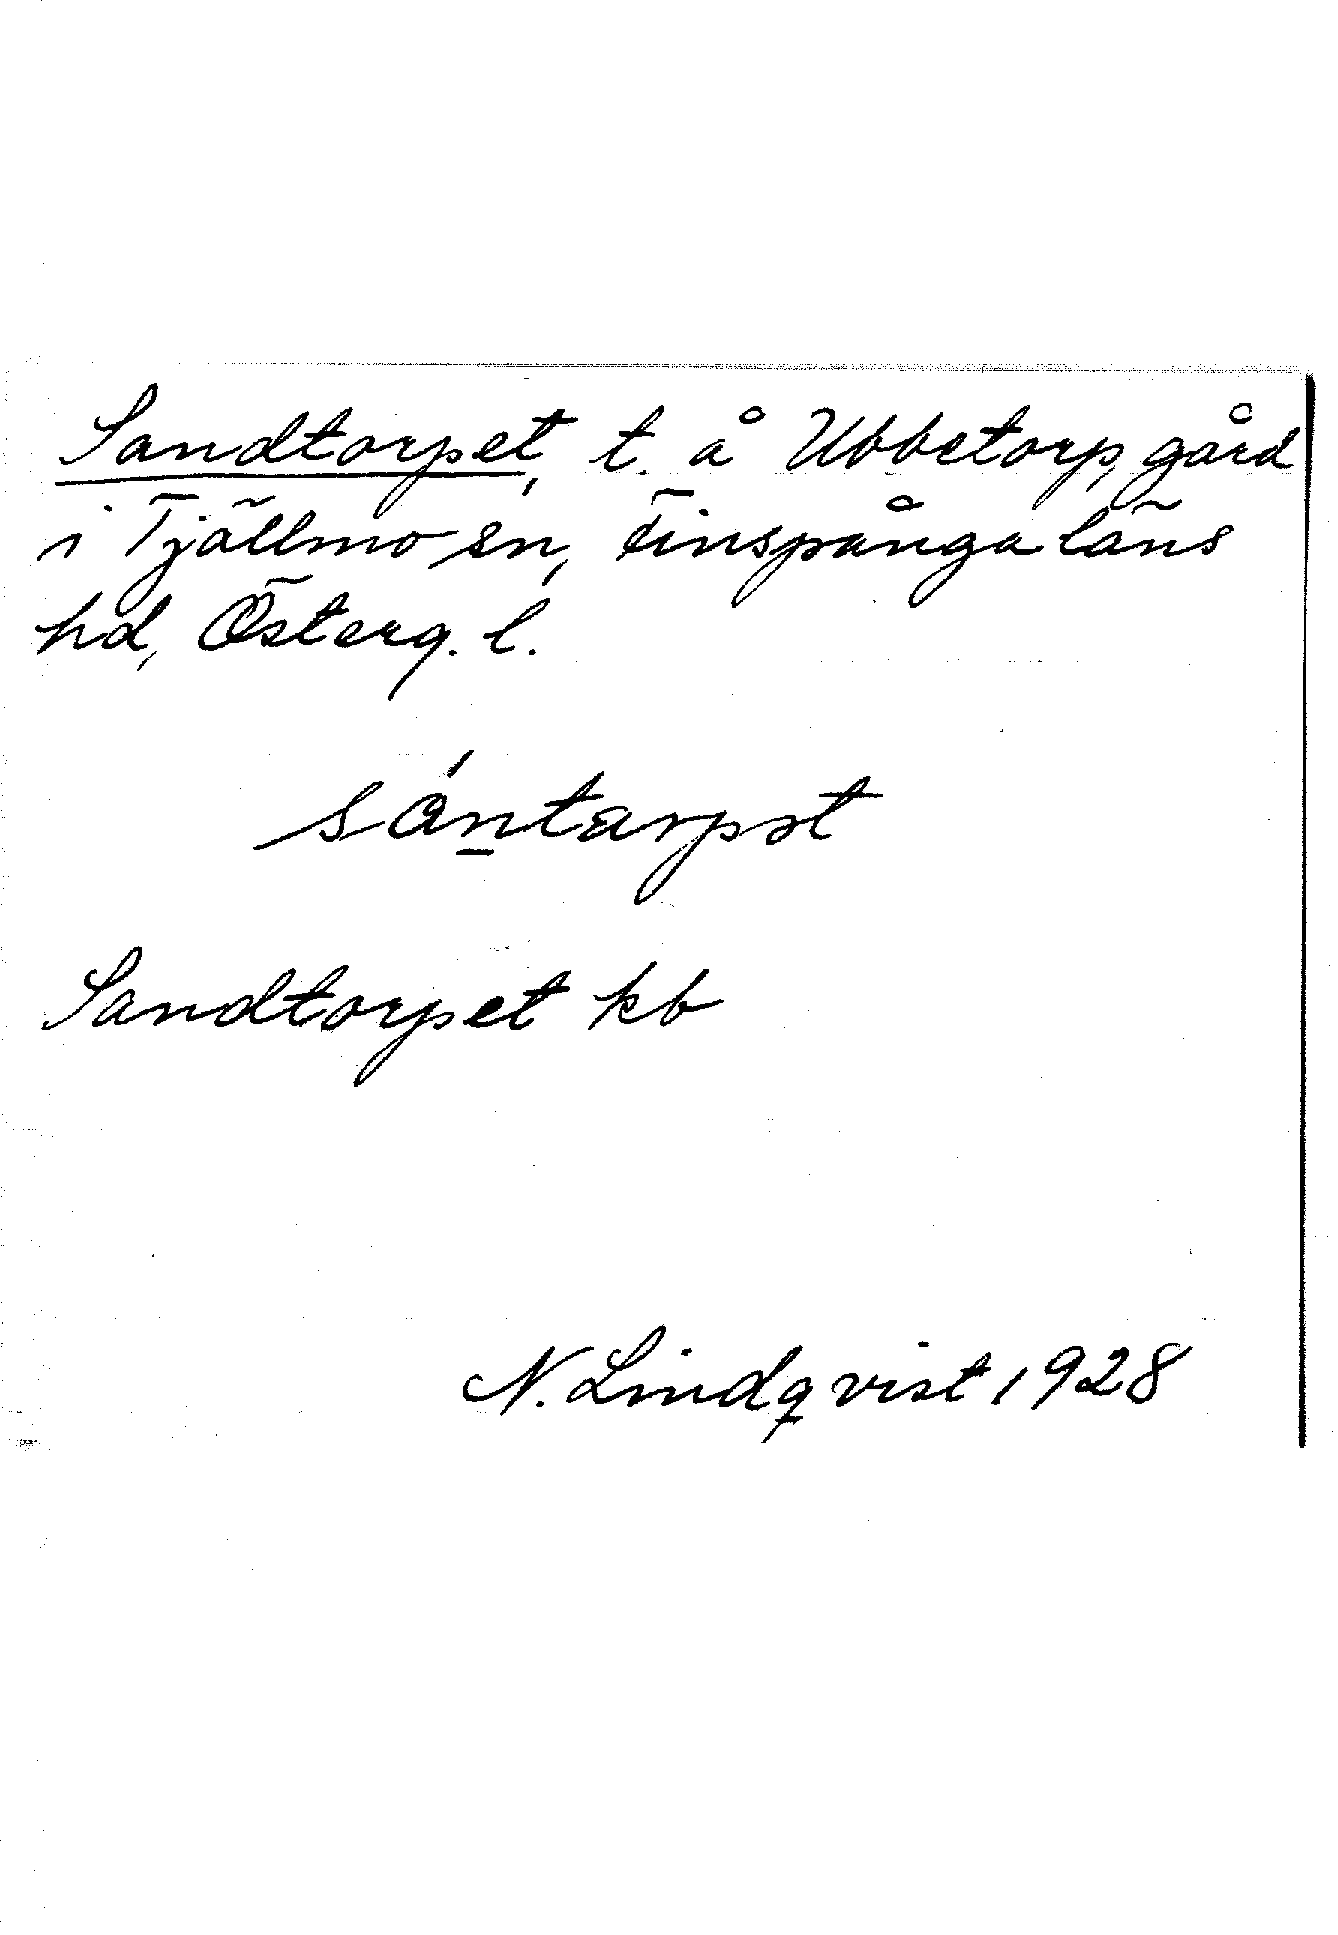 Sandtorpet, t. å Ubbetorp, gård
i Tjällmo sn, Finspånga läns
hd, Österg. l.
sántarpət
Sandtorpet kb
N. Lindqvist 1928